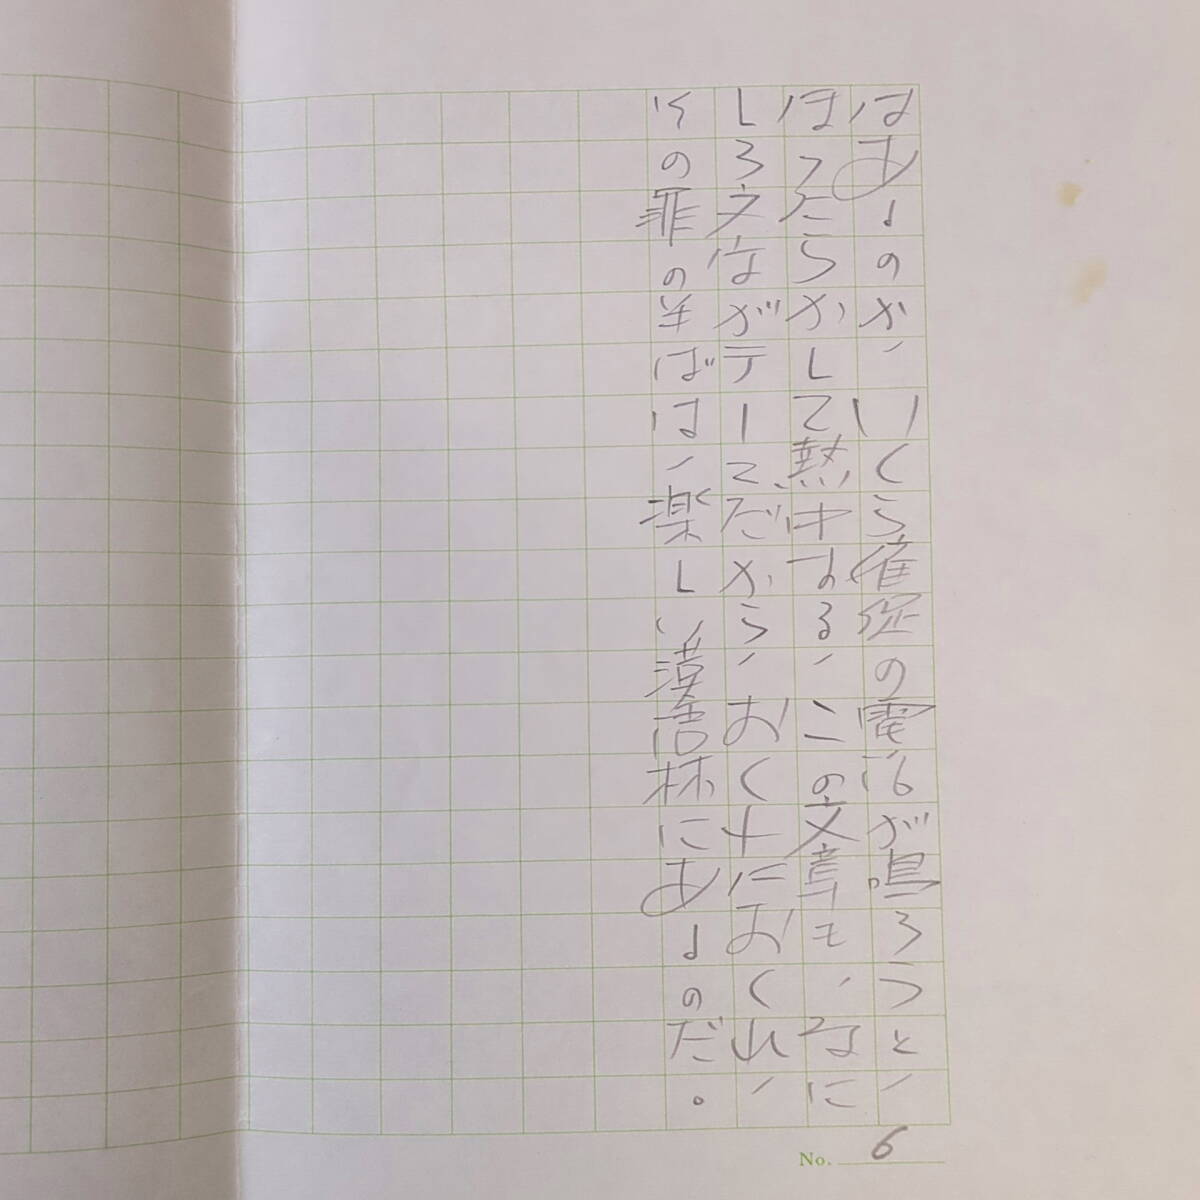 はあるのか、いくら催促の電話が鳴ろうと、
ほったらかして熱中する、この文章も、なに
しろがテーマだから、おくれにおくれ、
その罪の半ばは、楽しい漢語林にあるのだ。
No. 6